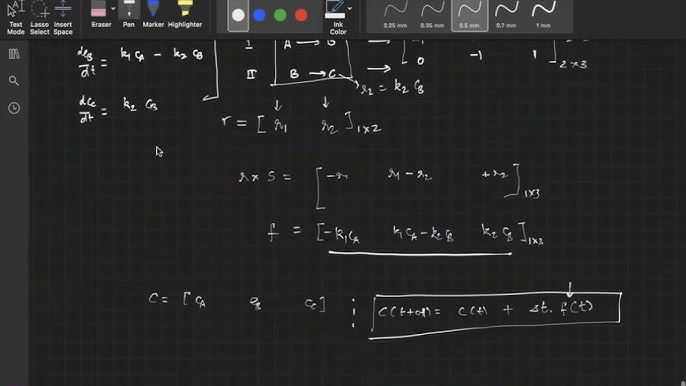 Text Mode Lasso Select Insert Space Eraser Pen Marker Highlighter Ink Color 0.25 mm 0.35 mm 0.5 mm 0.7 mm 1 mm
dc_B/dt = k₁ C_A − k₂ C_B
I A → B
-1 1
II B → C 0 2×3
r₂ = k₂ C_B
dC_C/dt = k₂ C_B
r = [ r₁ r₂ ]₁ₓ₂
r × S = [ −r₁ r₁ − r₂ + r₂ ]₁ₓ₃
f = [ −k₁C_A k₁C_A − k₂C_B k₂ C_B ]₁ₓ₃
C = [ C_A C_B C_C ] C(t+Δt) = C(t) + Δt. f(t)